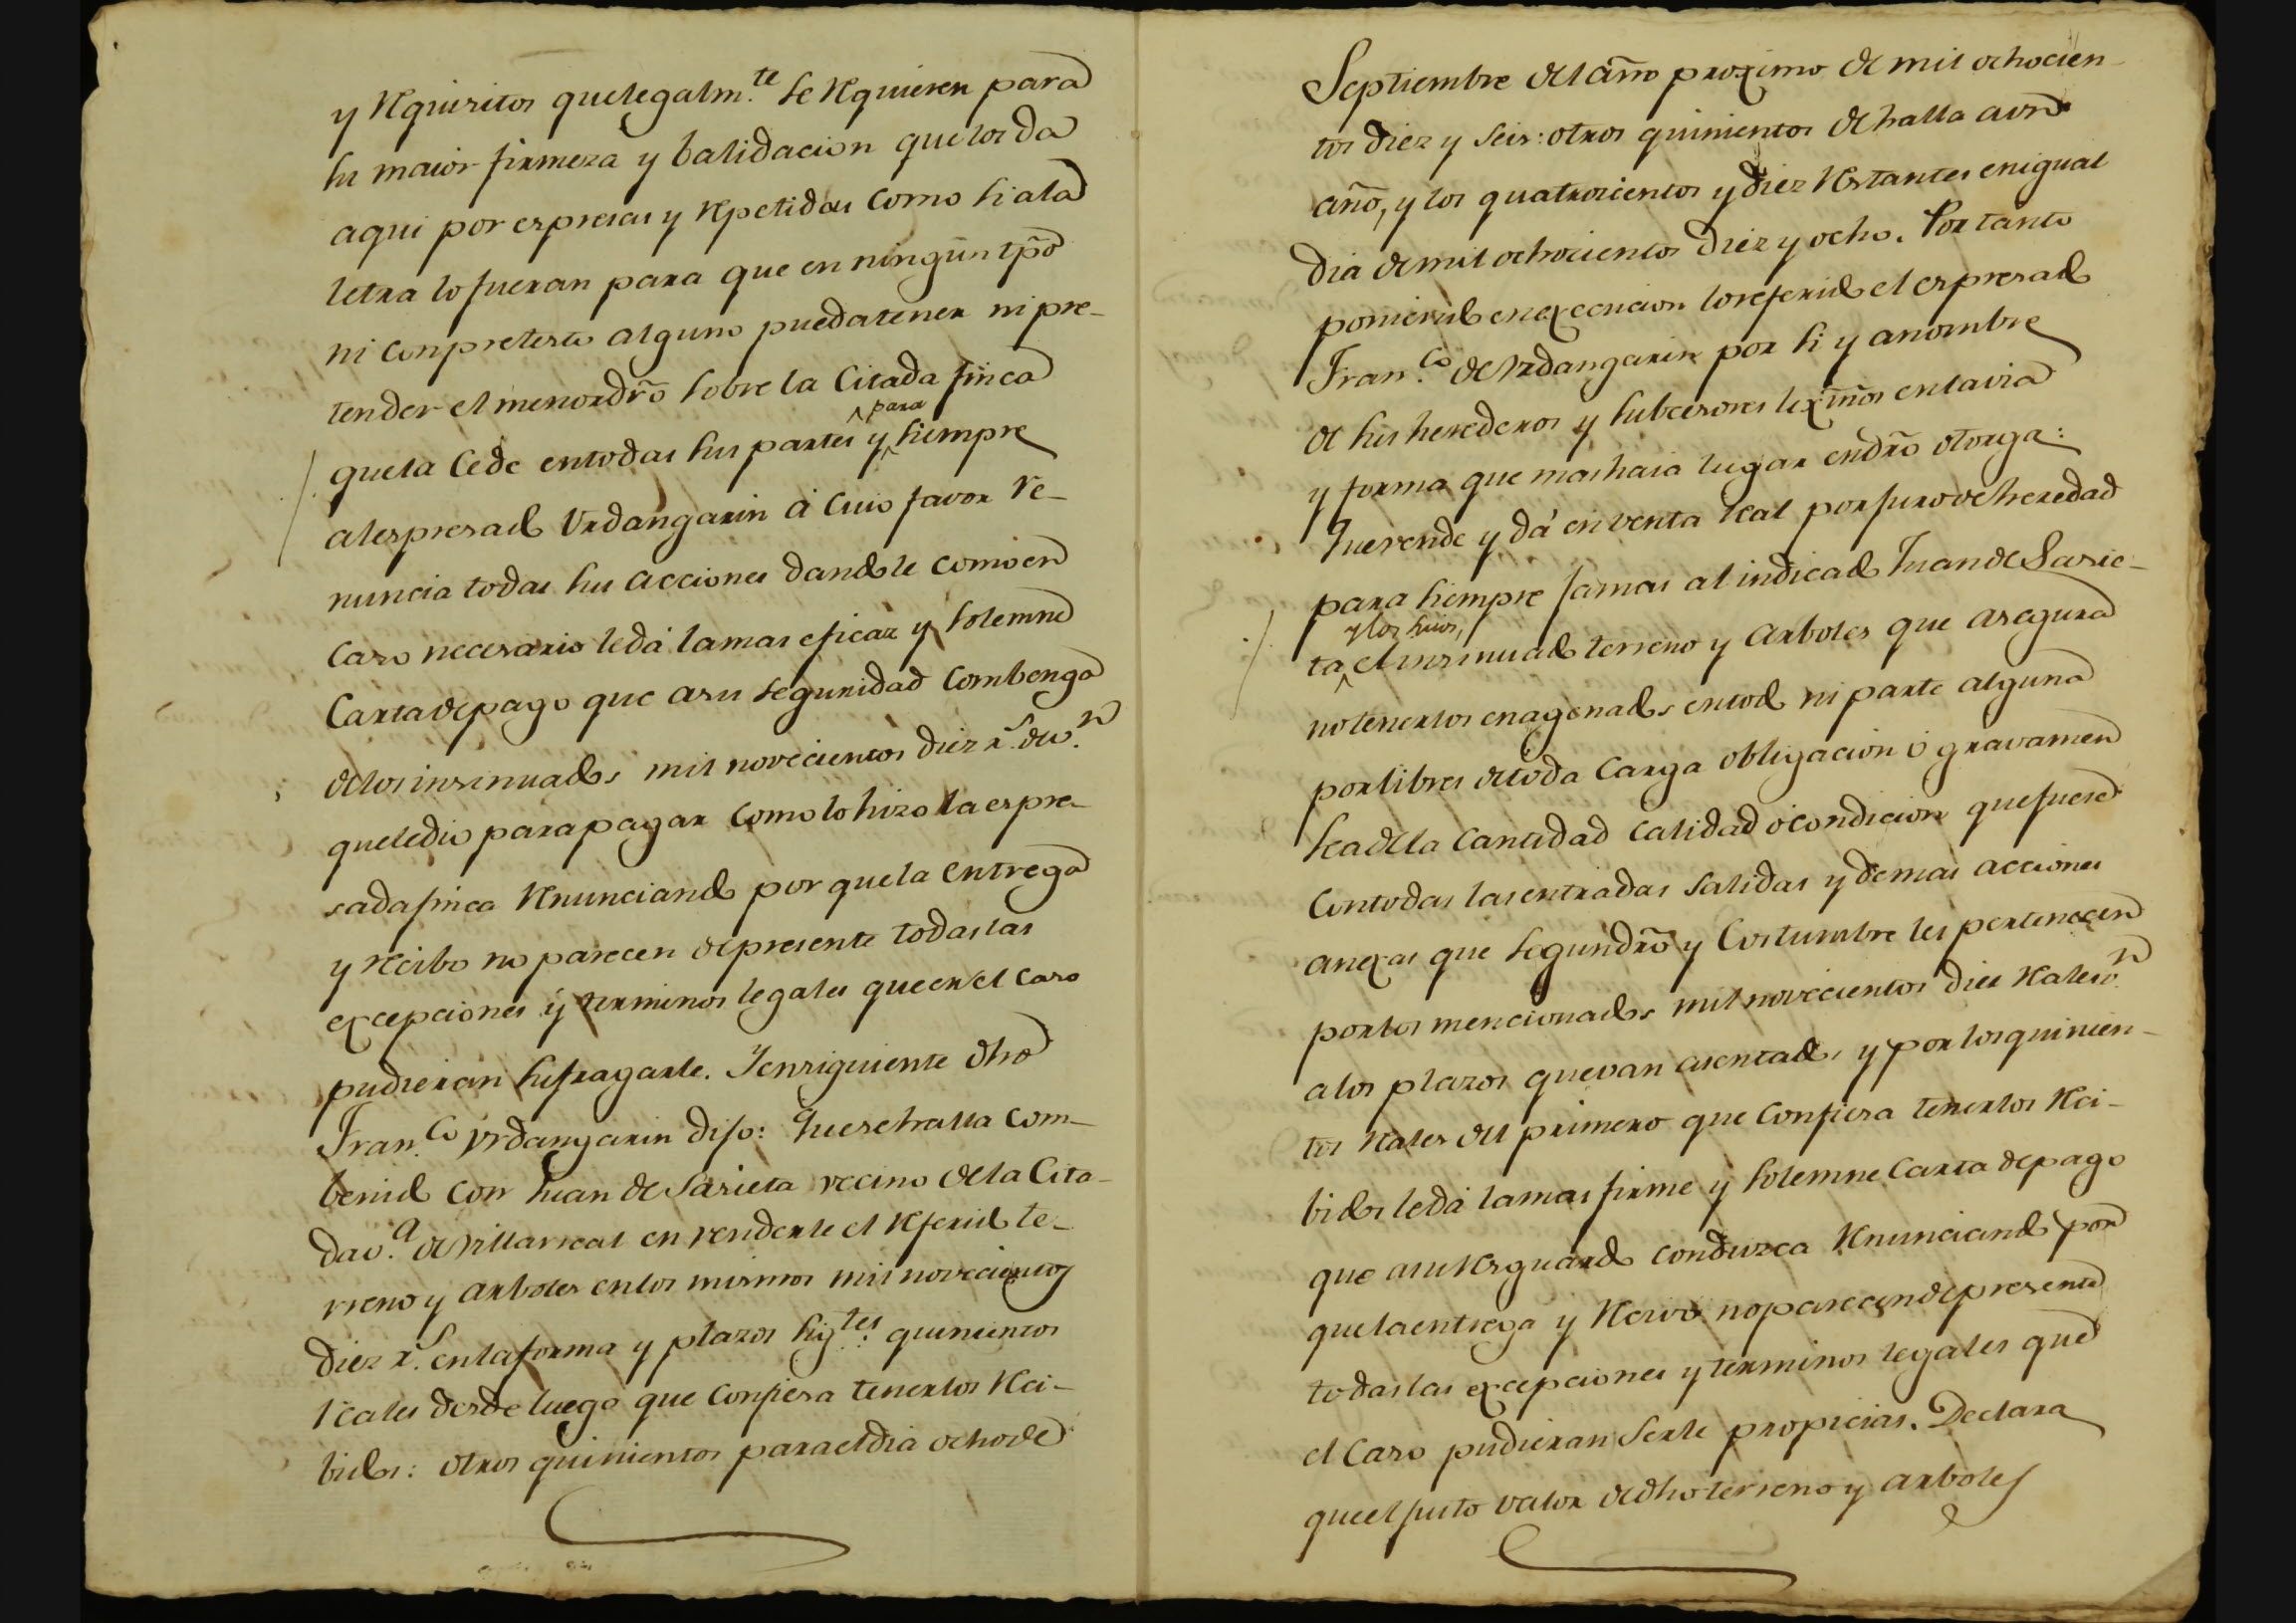 y requisitos que legalm.te se requieren para
su maior firmeza y balidacion que los da
aqui por espresas y repetidas como si a la
letra lo fueran para que en ningun tpo
ni con pretesto alguno pueda tener ni pre-
tender el menor dro sobre la citada finca
que la cede en todas sus partes y para siempre
al espresado Urdangarin á cuio favor re-
nuncia todas sus acciones dandole como en
caso necesario le dá la mas eficaz y solemne
carta de pago que a su seguridad combenga
de los insinuados mil novecientos diez r.s de v.n
que le dio para pagar como lo hizo la espre-
sada finca renunciando por que la entrega
y recibo no parecen de presente todas las
excepciones y terminos legales que en el caso
pudieran sufragarle. Y en siguiente dho
Fran.co Urdangarin dijo: Que se halla com-
benido con Juan de Sarieta vecino de la cita-
da v.a de Villarreal en venderle el referido te-
rreno y arboles en los mismos mil novecientos
diez r.s en la forma y plazos sig.tes quinientos
reales desde luego que confiesa tenerlos reci-
bidos: otros quinientos para el dia ocho de
Septiembre del año proximo de mil ochocien-
tos diez y seis: otros quinientos de halla a un
año, y los quatrocientos y diez restantes en igual
dia de mil ochocientos diez y ocho. Por tanto
poniendo en execucion lo referido el espresado
Fran.co de Urdangarin por si y a nombre
de sus herederos y subcesores lexmos en la via
y forma que mas haia lugar en dro otorga:
Que vende y dá en venta real por juro de heredad
para siempre jamas al indicado Juan de Sarie-
ta y los suios, el insinuado terreno y arboles que asegura
no tenerlos enagenados en todo ni parte alguna
por libres de toda carga obligacion ó gravamen
sea de la cantidad calidad ó condicion que fuere
con todas las entradas salidas y demas acciones
anexas que segun dro y costumbre les pertenecen
por los mencionados mil novecientos diez reales v.n
a los plazos que van asentados y por los quinien-
tos reales del primero que confiesa tenerlos reci-
bidos le dá la mas firme y solemne carta de pago
que a su resguardo conduzca renunciando por
que la entrega y recivo no parecen de presente
todas las excepciones y terminos legales que
el caso pudieran serle propicias. Declara
que el justo valor de dho terreno y arboles